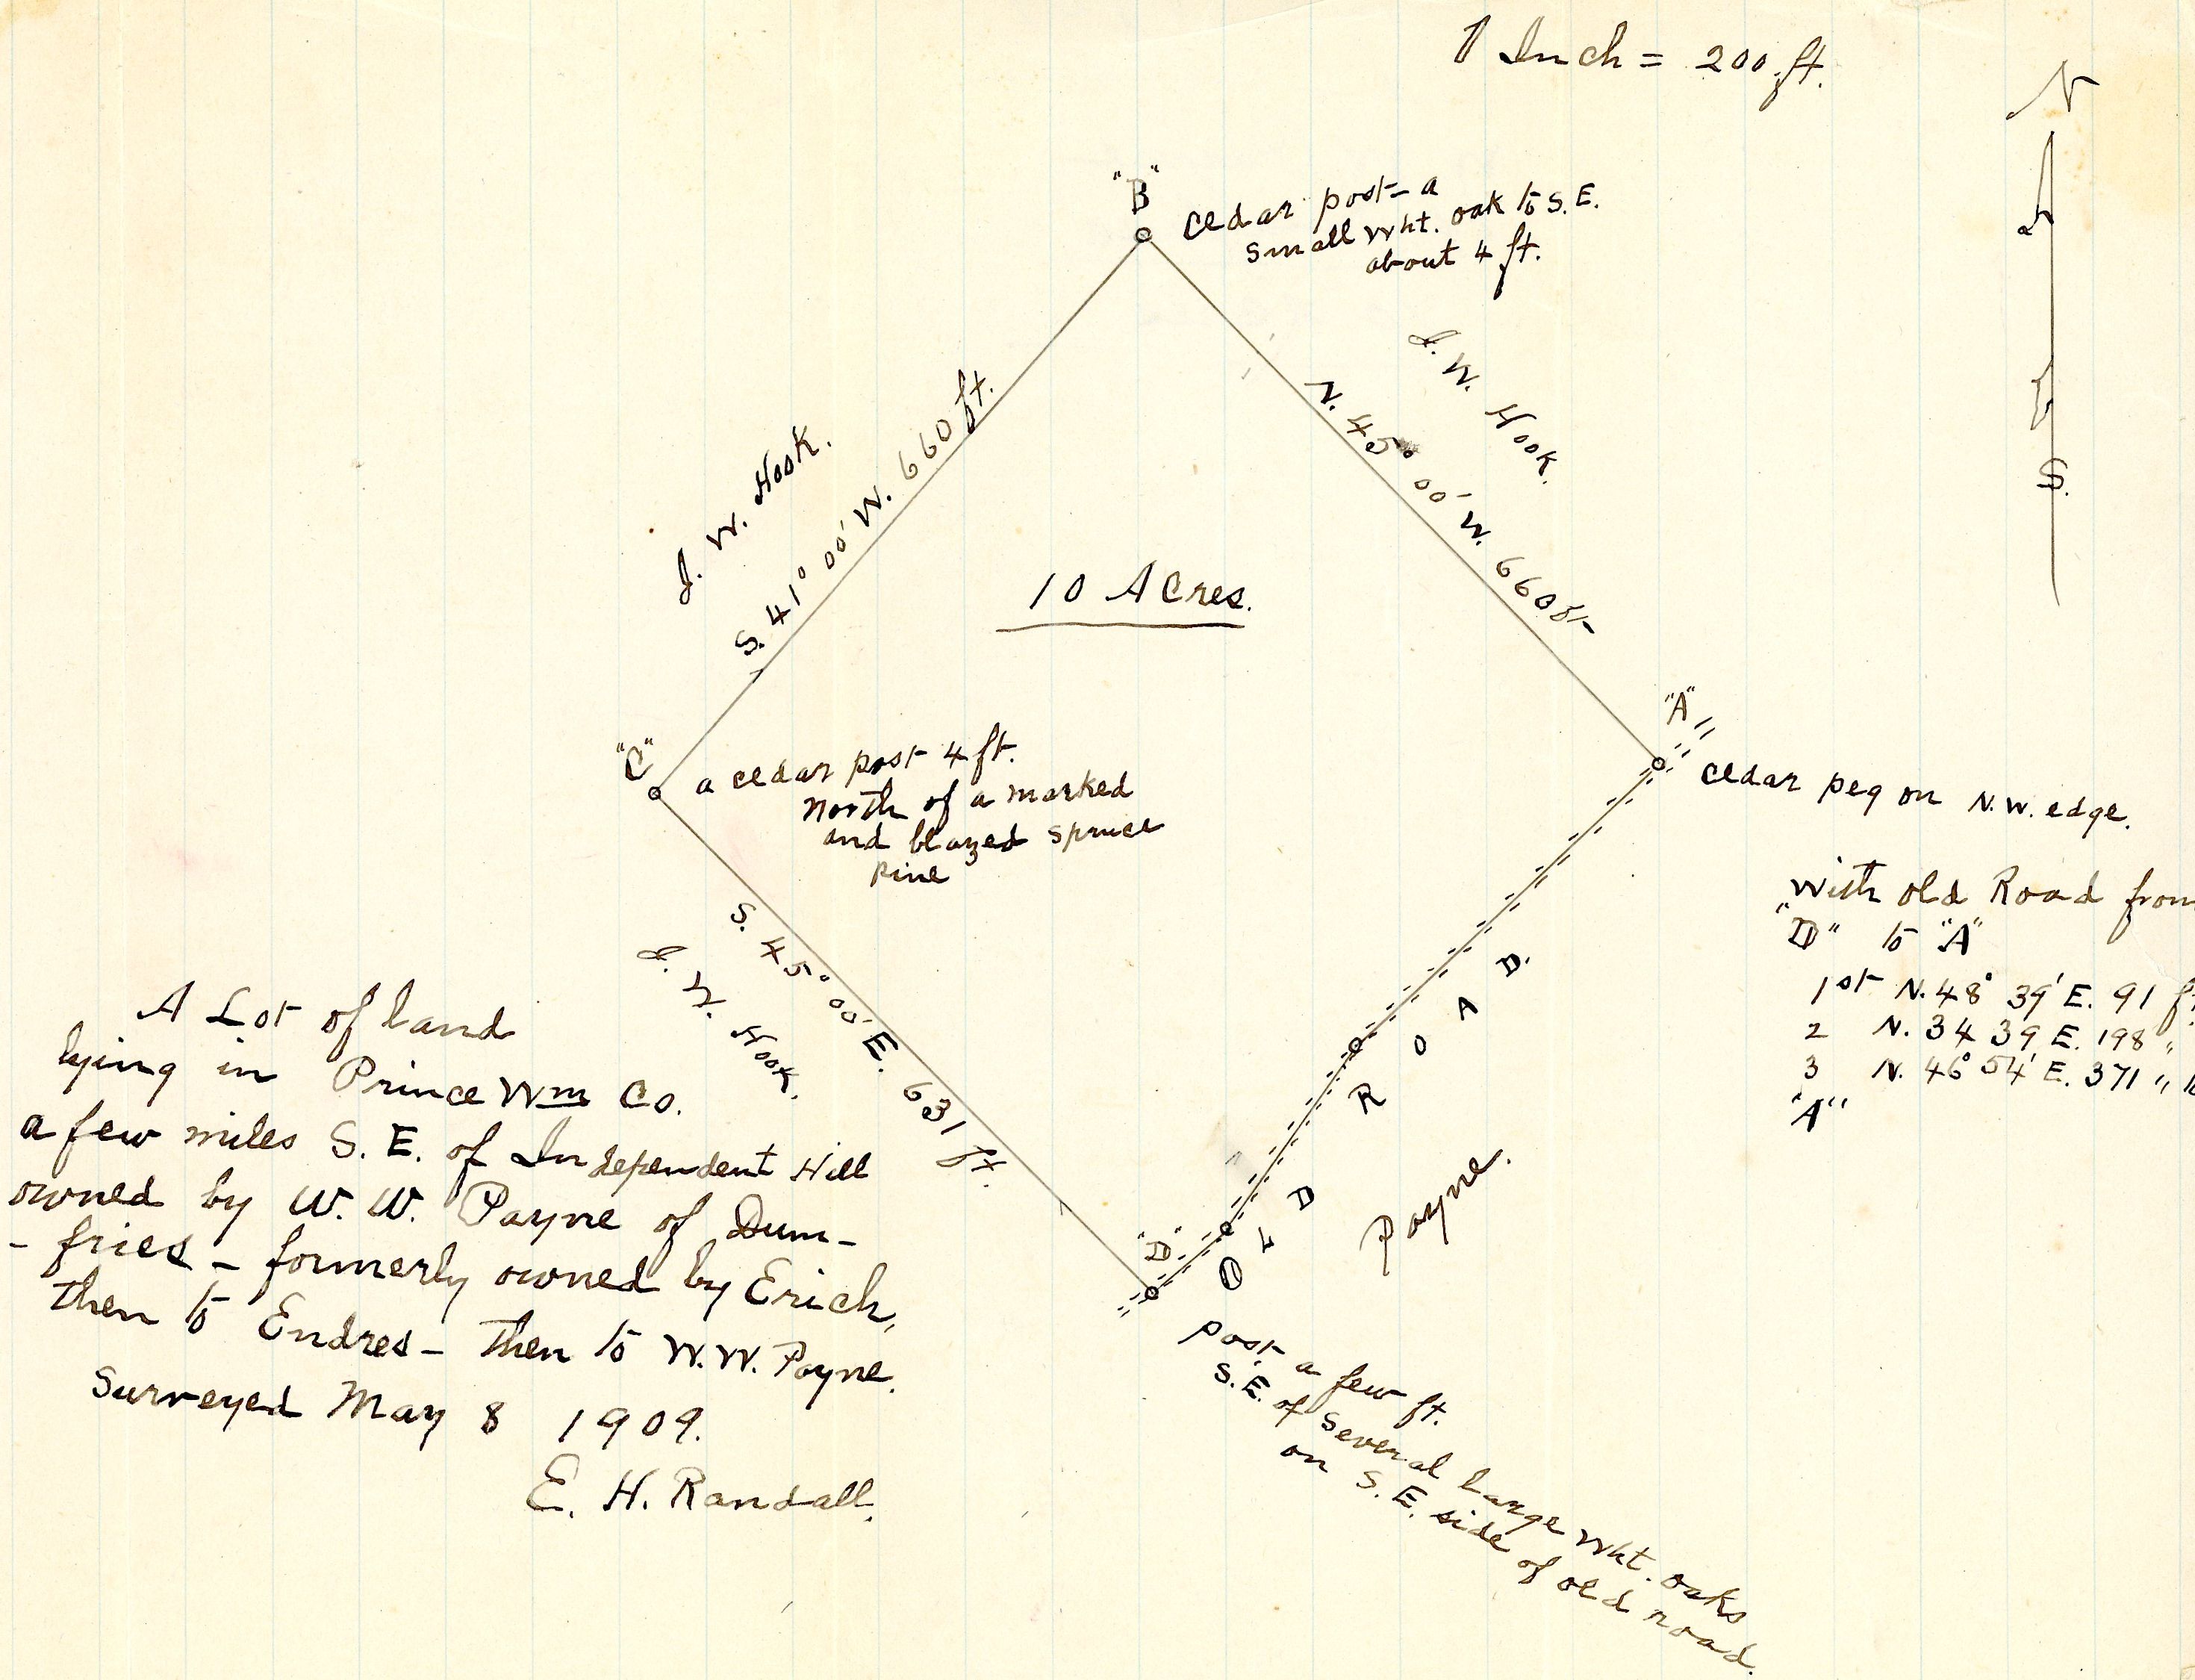 1 Inch = 200 ft.
N
S.
"B"
Cedar post - a
small Wht. oak to S.E.
about 4 ft.
J. W. Hook.
N. 45° 00' W. 660 ft
J. W. Hook.
S. 41° 00' W. 660 ft.
10 Acres.
"A"
Cedar peg on N.W. edge.
"C"
a cedar post 4 ft.
North of a marked
and blazed spruce
pine
With old Road from
"D" to "A"
1st N. 48° 39' E. 91 ft
2 N. 34 39 E. 198 "
3 N. 46° 54' E. 371 "
"A"
S. 45° 00' E. 631 ft.
J. W. Hook.
OLD ROAD.
Payne.
"D"
post a few ft.
S.E. of several large Wht. oaks
on S.E. side of old road.
A Lot of land
lying in Prince Wm Co.
a few miles S. E. of Independent Hill
owned by W. W. Payne of Dum-
- fries - formerly owned by Erich,
then to Endres - then to W. W. Payne.
Surveyed May 8 1909.
E. H. Randall.